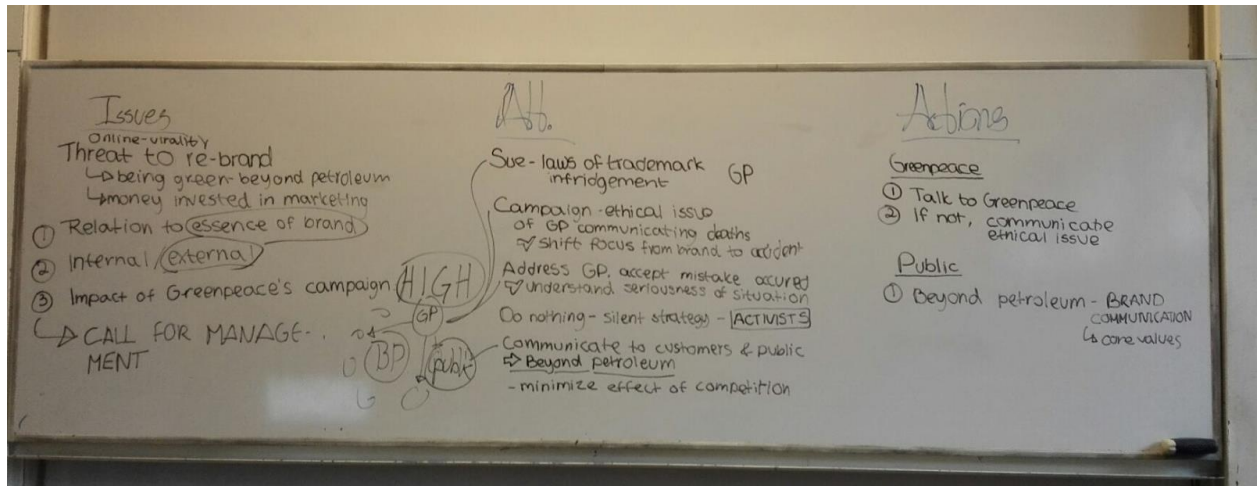 Issues
Online-virality
Threat to re-brand
↳ being green-beyond petroleum
↳ money invested in marketing
① Relation to essence of brand
② Internal/external
③ Impact of Greenpeace's campaign HIGH
↳ CALL FOR MANAGE-
MENT
GP
BP
public
Alt.
Sue - laws of trademark
infridgement GP
Campaign - ethical issue
of GP communicating deaths
↳ shift focus from brand to accident
Address GP, accept mistake accured
↳ understand seriousness of situation
Do nothing - silent strategy - ACTIVISTS
Communicate to customers & public
⇒ Beyond petroleum
- minimize effect of competition
Actions
Greenpeace
① Talk to Greenpeace
② If not, communicate
ethical issue
Public
① Beyond petroleum - BRAND
COMMUNICATION
↳ core values